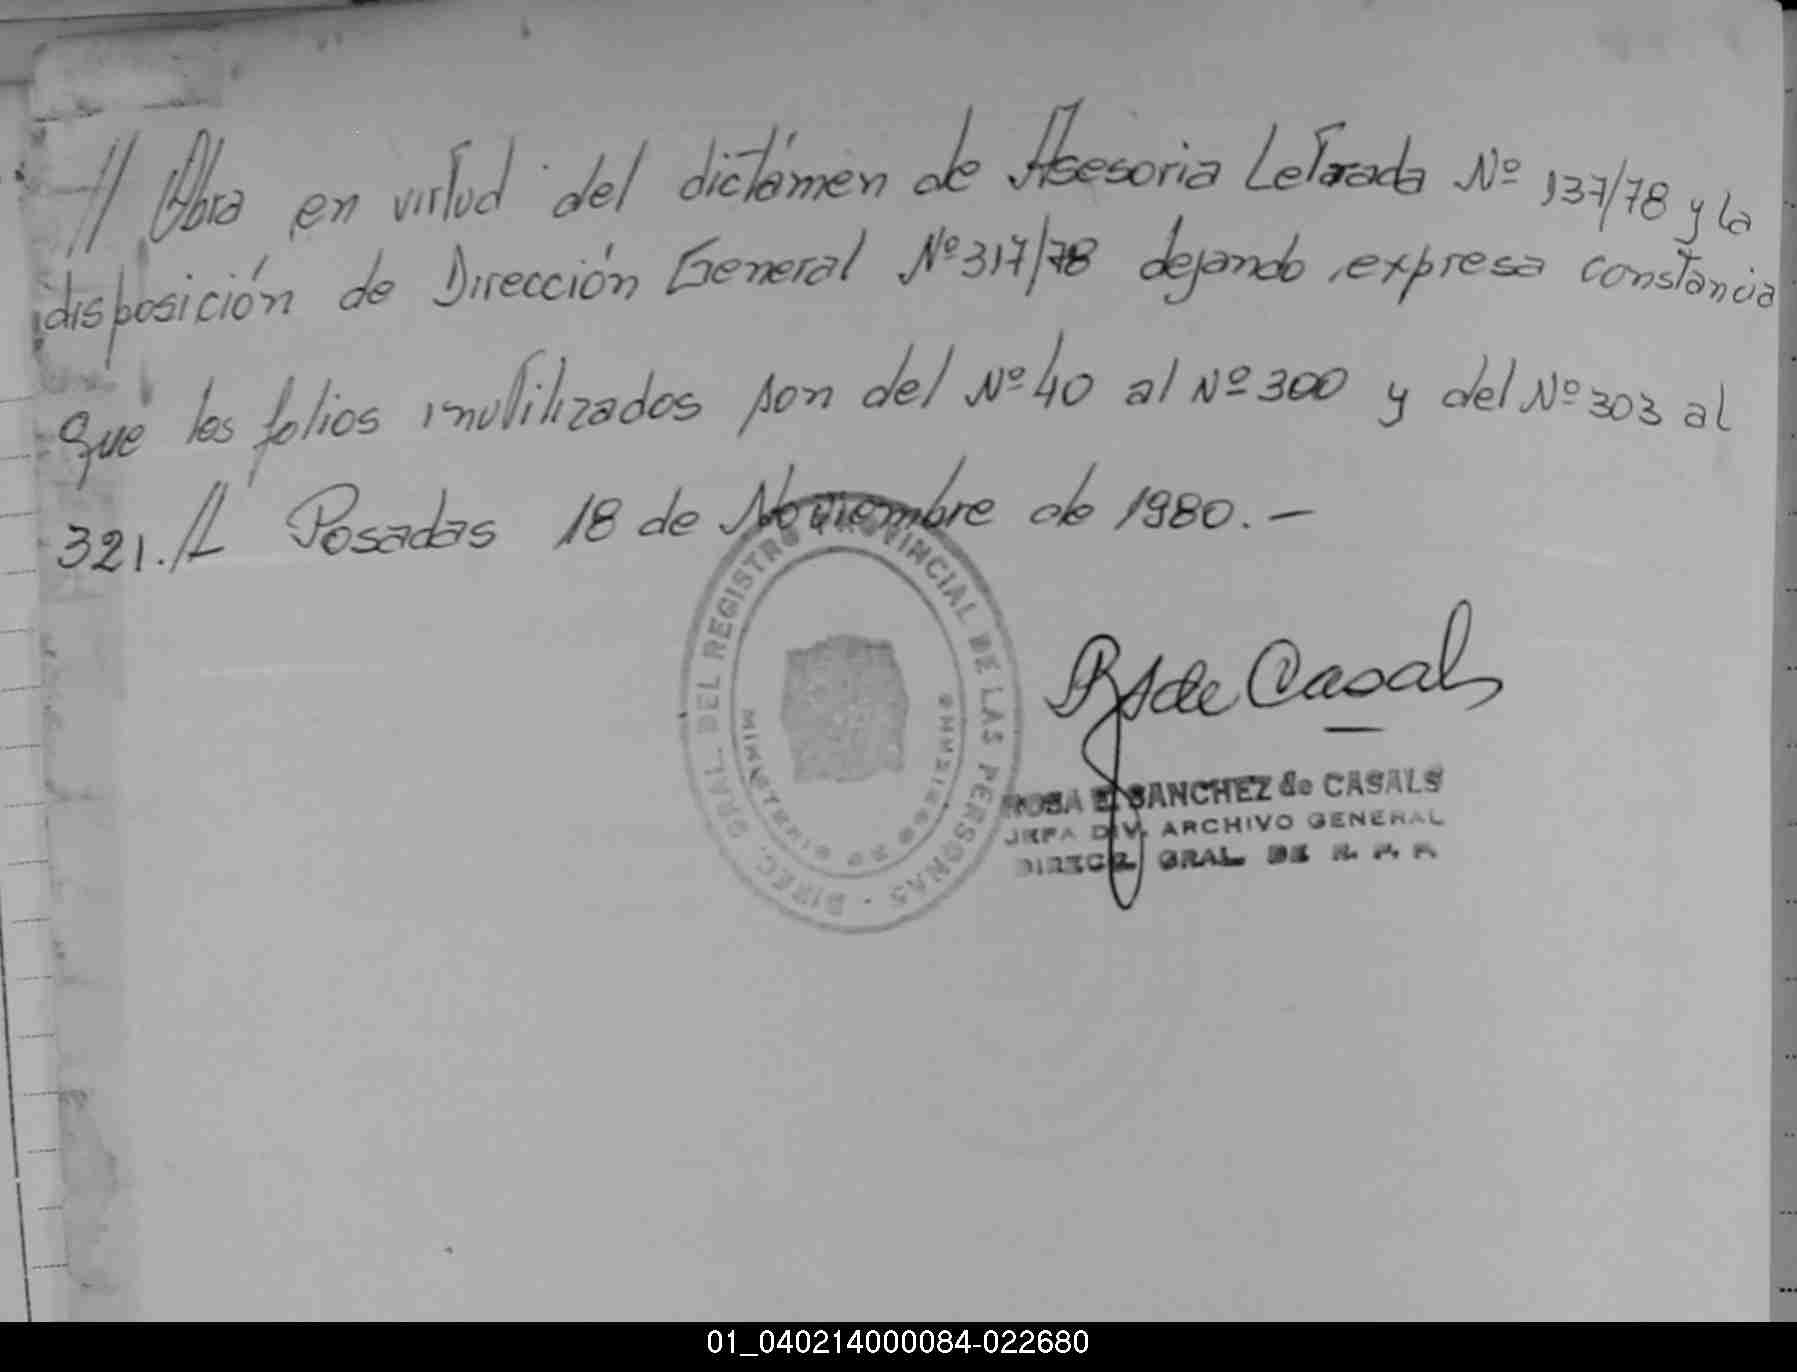 // Obra en virtud del dictámen de Asesoria Letrada Nº 137/78 y la
disposición de Dirección General Nº 317/78 dejando expresa constancia
que los folios inutilizados son del Nº 40 al Nº 300 y del Nº 303 al
321. // Posadas 18 de Noviembre de 1980. —
DIREC. GRAL. DEL REGISTRO PROVINCIAL DE LAS PERSONAS
MINISTERIO DE GOBIERNO
RS de Casals
ROSA E. SANCHEZ de CASALS
JEFA DIV. ARCHIVO GENERAL
DIREC. GRAL. DE R. P. P.
01_040214000084-022680